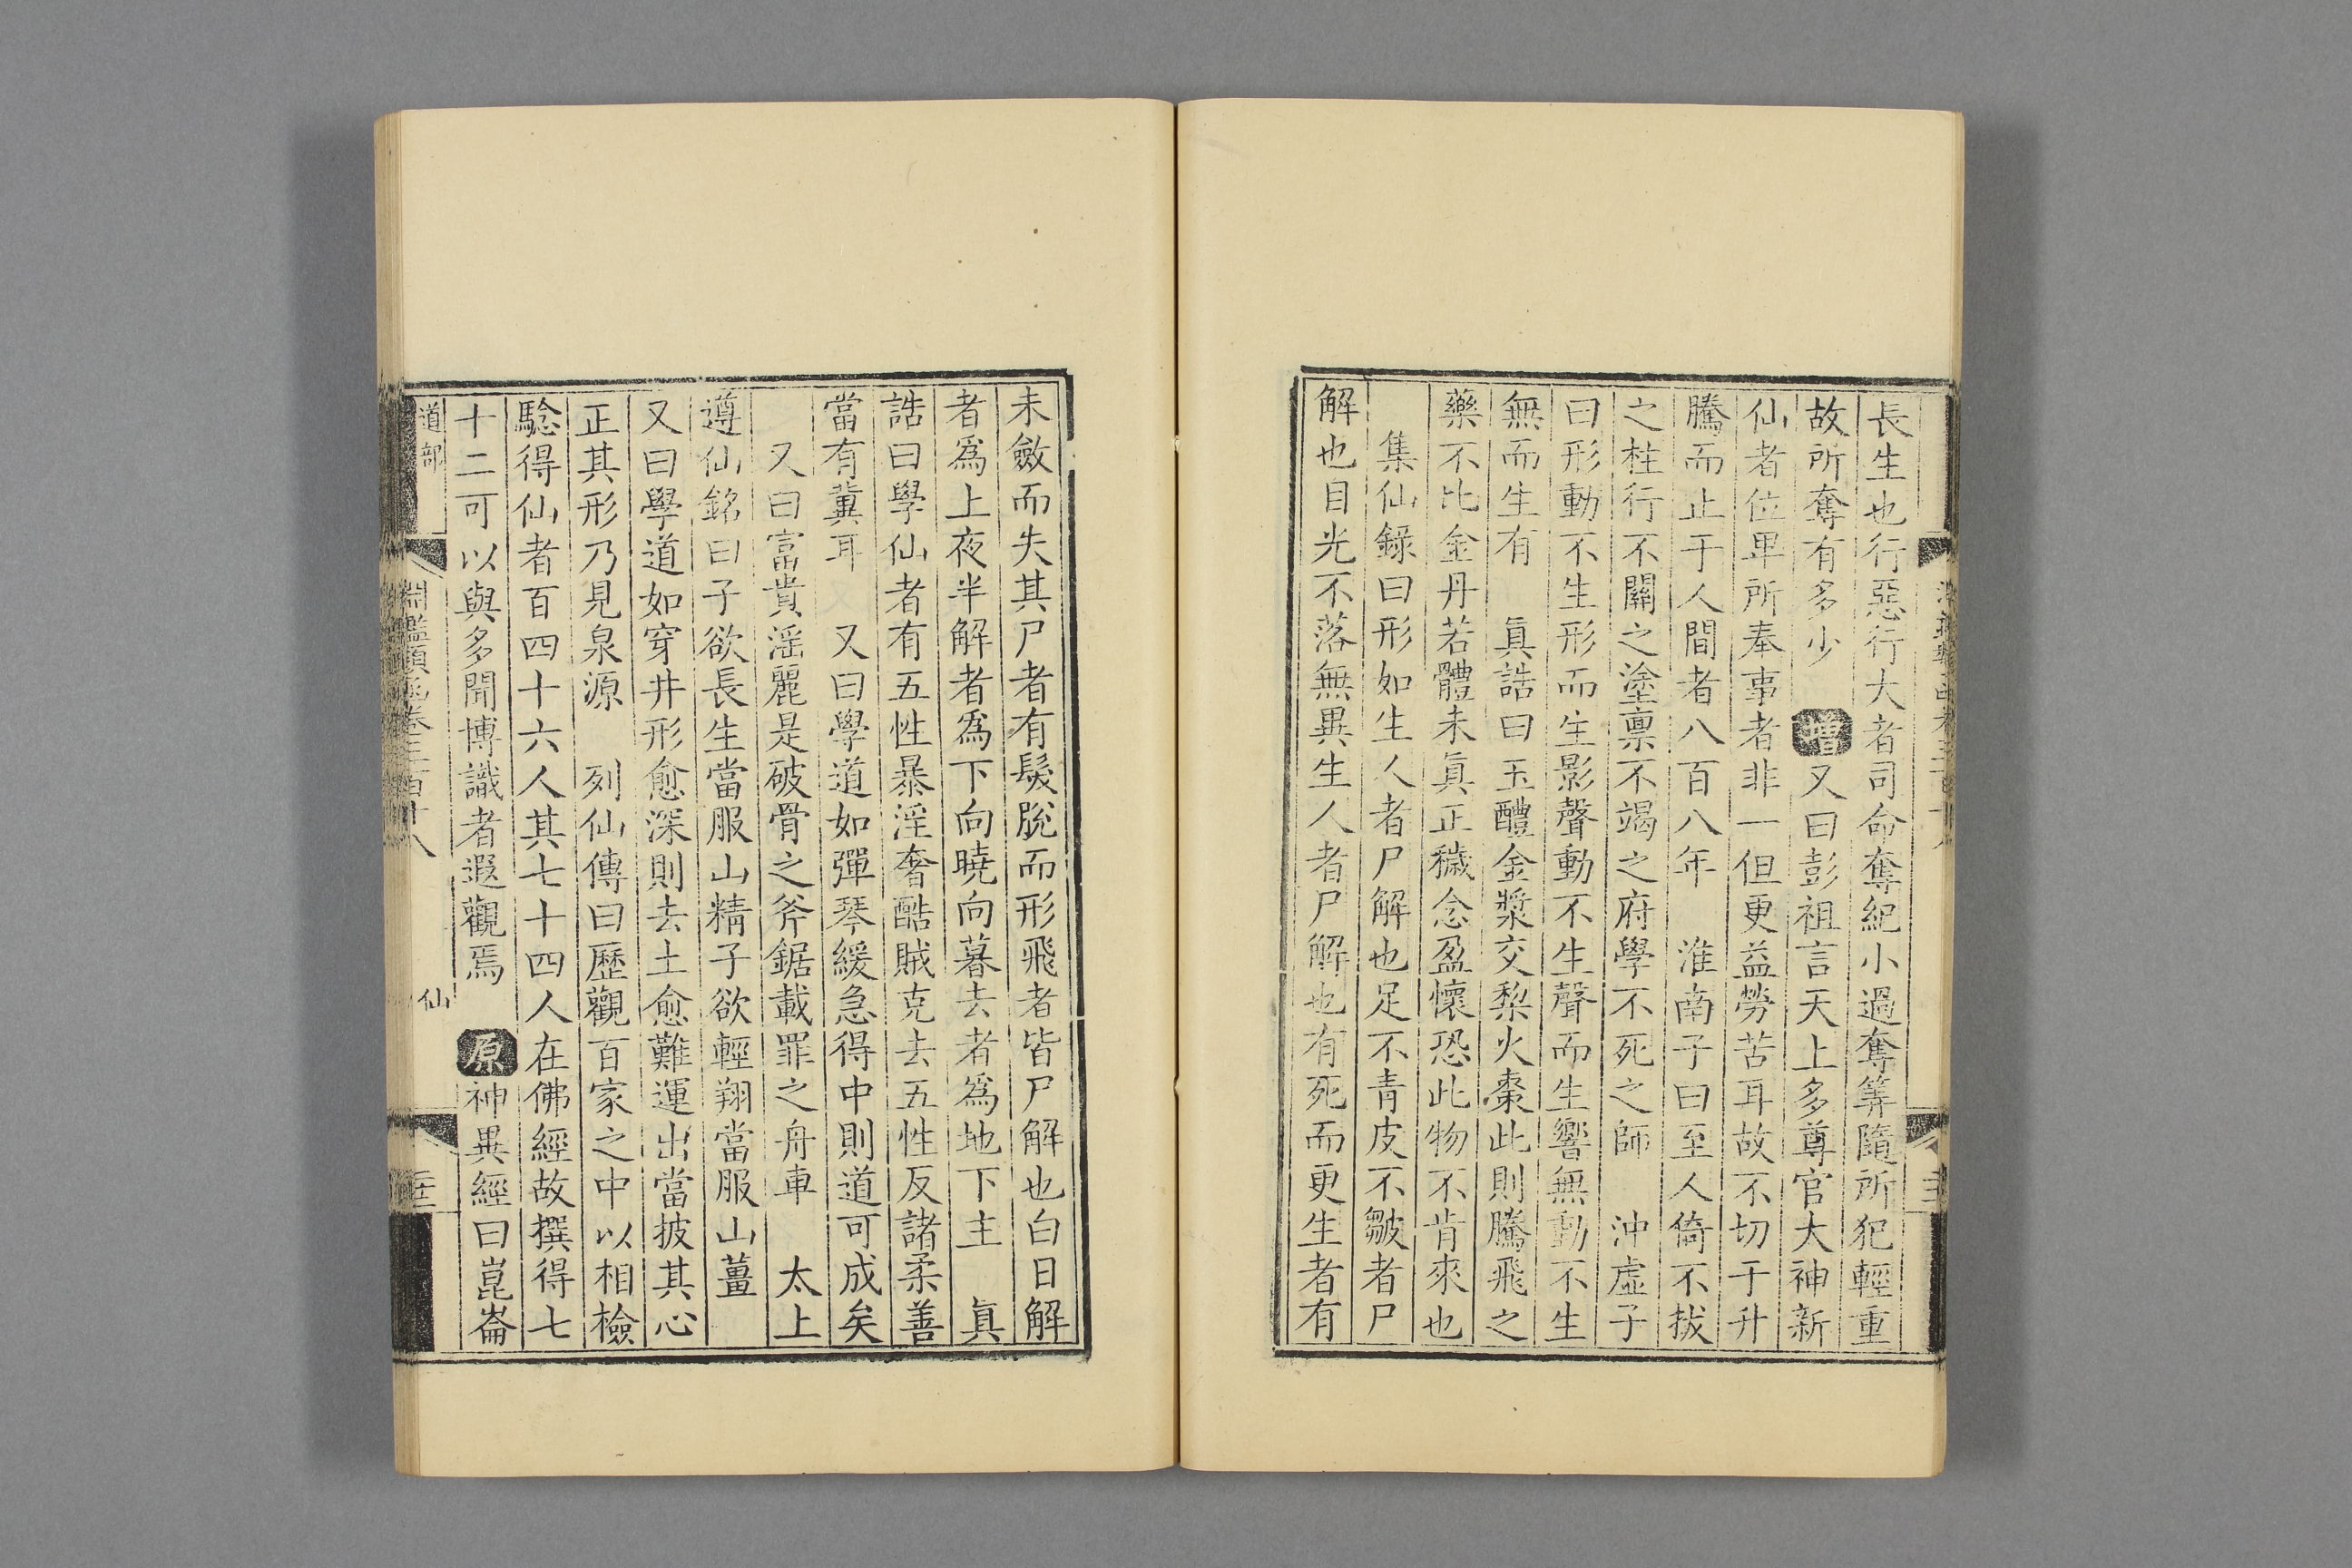 長生也行惡行大者司命奪紀小過奪算隨所犯輕重
故所奪有多少 增又曰彭祖言天上多尊官大神新
仙者位卑所奉事者非一但更益勞苦耳故不切于升
騰而止于人間者八百八年 淮南子曰至人倚不拔
之柱行不關之塗禀不竭之府學不死之師 沖虛子
曰形動不生形而生影聲動不生聲而生響無動不生
無而生有 真誥曰玉醴金漿交梨火棗此則騰飛之
藥不比金丹若體未真正穢念盈懷恐此物不肯來也
集仙錄曰形如生人者尸解也足不青皮不皺者尸
解也目光不落無異生人者尸解也有死而更生者有
未斂而失其尸者有髮脫而形飛者皆尸解也白日解
者為上夜半解者為下向曉向暮去者為地下主 真
誥曰學仙者有五性暴淫奢酷賊克去五性反諸柔善
當有冀耳 又曰學道如彈琴緩急得中則道可成矣
又曰富貴滛麗是破骨之斧鋸載罪之舟車 太上
遵仙銘曰子欲長生當服山精子欲輕翔當服山薑
又曰學道如穿井形愈深則去土愈難運出當披其心
正其形乃見泉源 列仙傳曰歷觀百家之中以相檢
騐得仙者百四十六人其七十四人在佛經故撰得七
十二可以與多聞博識者遐觀焉 原神異經曰崑崙
道部
淵鑑類函卷三百十八
仙